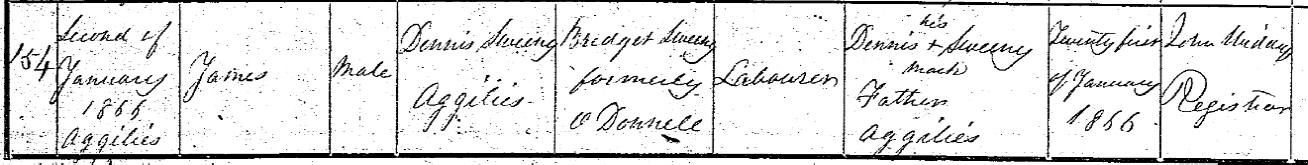 154
Second of
January
1866
Aggilies
James
Male
Dennis Sweeny
Aggilies
Bridget Sweeny
formerly
O Donnell
Labourer
his
Dennis + Sweeny
mark
Father
Aggilies
Twenty first
of January
1866
John
Registrar